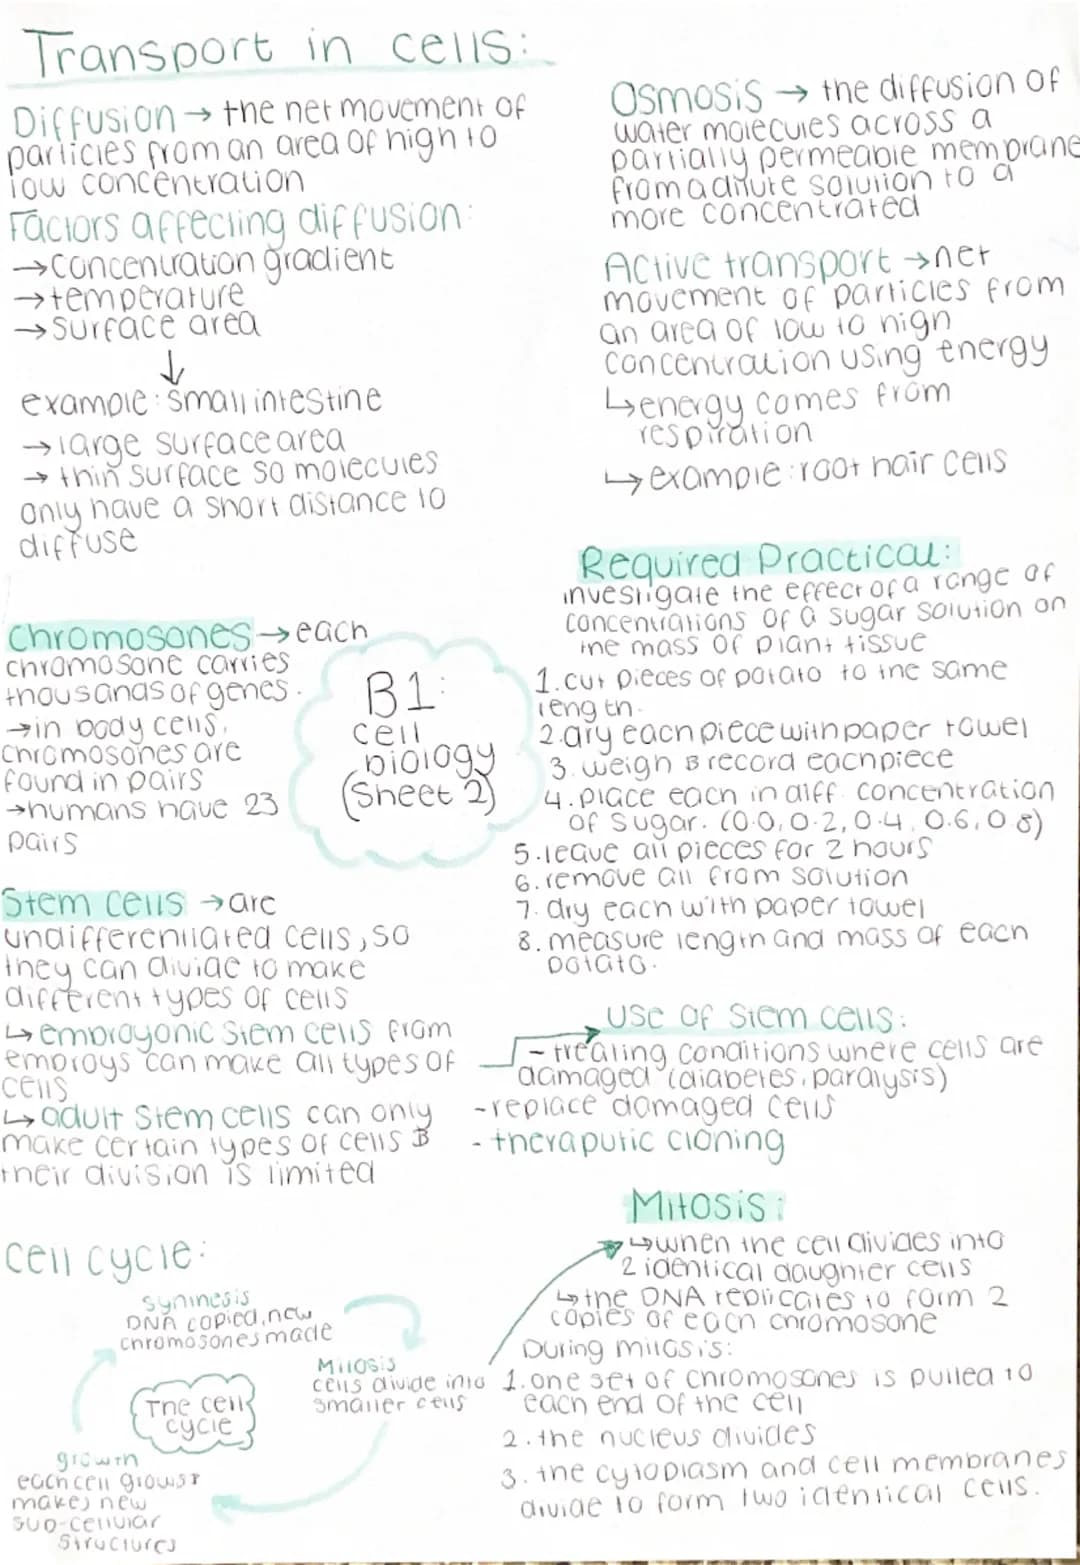 Transport in cells:
Diffusion → the net movement of
particles from an area of high to
low concentration
Factors affecting diffusion:
→ concentration gradient
→ temperature
→ surface area
↓
example: small intestine
→ large surface area
→ thin surface so molecules
only have a short distance to
diffuse
Osmosis → the diffusion of
water molecules across a
partially permeable membrane
from a dilute solution to a
more concentrated
Active transport → net
movement of particles from
an area of low to high
concentration using energy
↳ energy comes from
respiration
↳ example: root hair cells
Required Practical:
investigate the effect of a range of
concentrations of a sugar solution on
the mass of plant tissue
1. cut pieces of potato to the same
length.
2. dry each piece with paper towel
3. weigh & record each piece
4. place each in diff. concentration
of sugar. (0.0, 0.2, 0.4, 0.6, 0.8)
5. leave all pieces for 2 hours
6. remove all from solution
7. dry each with paper towel
8. measure length and mass of each
potato.
chromosones → each
chromosone carries
thousands of genes.
→ in body cells,
chromosones are
found in pairs
→ humans have 23
pairs
B1:
cell
biology
(Sheet 2)
Stem cells → are
undifferentiated cells, so
they can divide to make
different types of cells
↳ embroyonic stem cells from
embroys can make all types of
cells
↳ adult stem cells can only
make certain types of cells &
their division is limited
Use of stem cells:
- treating conditions where cells are
damaged (diabetes, paralysis)
- replace damaged cells
- theraputic cloning
Mitosis:
↳ when the cell divides into
2 identical daughter cells
↳ the DNA replicates to form 2
copies of each chromosone
During mitosis:
1. one set of chromosones is pulled to
each end of the cell
2. the nucleus divides
3. the cytoplasm and cell membranes
divide to form two identical cells.
cell cycle:
synthesis
DNA copied, new
chromosones made
Mitosis
cells divide into
smaller cells
The cell
cycle
growth
each cell grows &
makes new
sub-cellular
structures